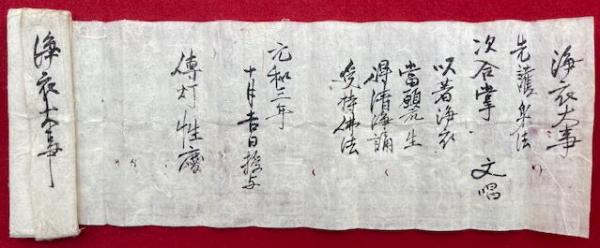 淨衣大事
先護身法
次合掌 文唱
以着淨衣
當願衆生
得清淨誦
受持佛法
元和三年
十月吉日授与
傳灯 性
淨衣大事